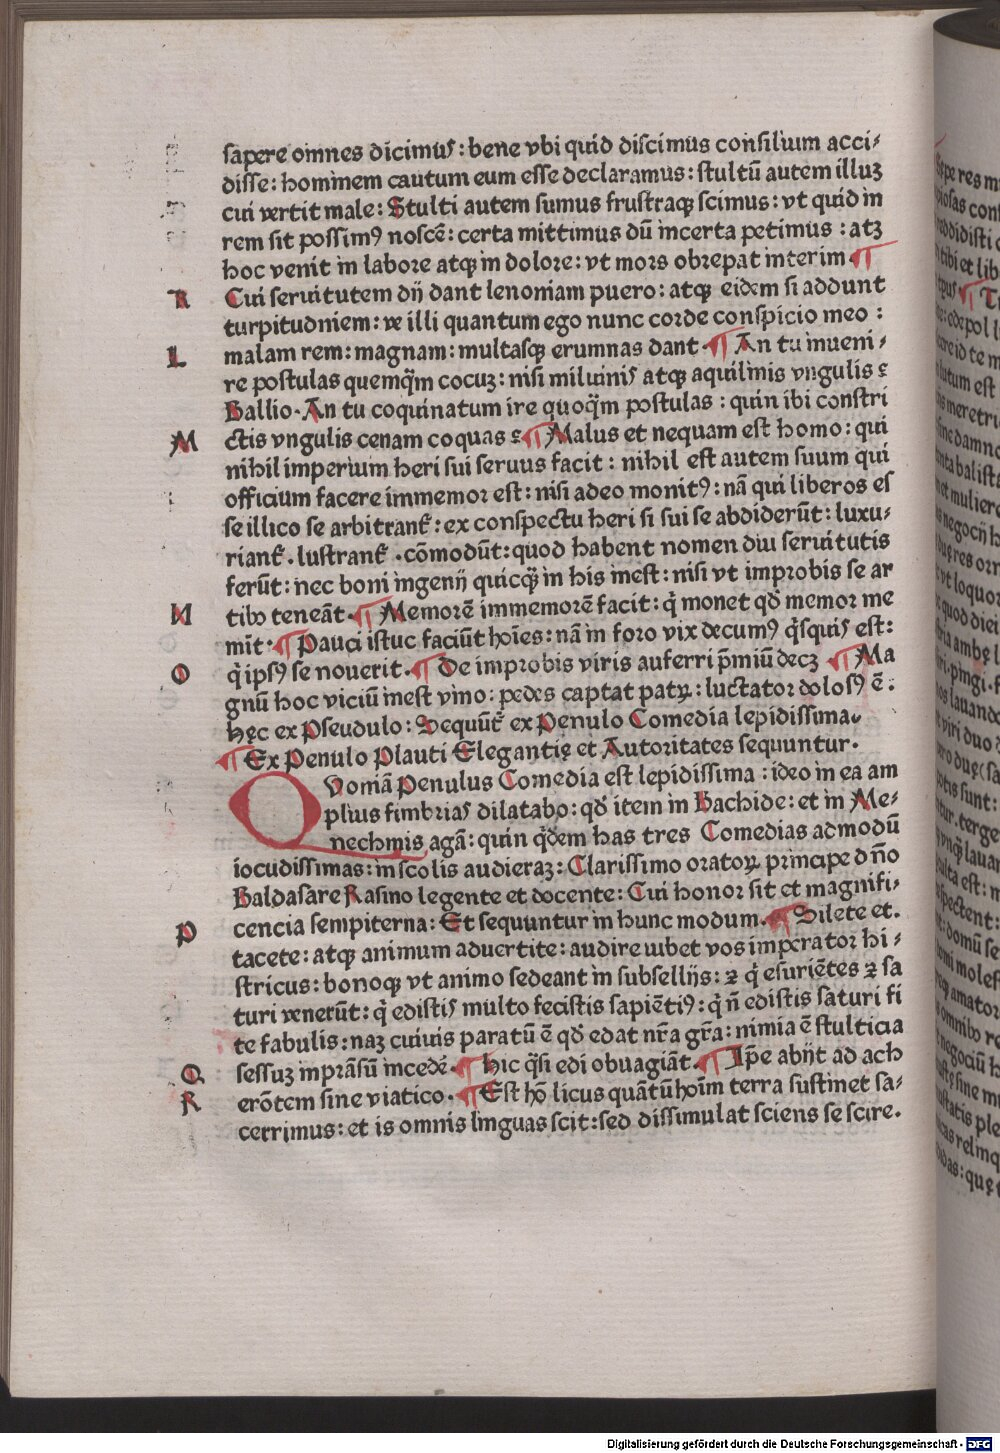 sapere omnes dicimus : bene vbi quid discimus consilium acci⸗
disse : hominem cautum eum esse declaramus : stultū autem illuꝫ
cui vertit male : Stulti autem sumus frustraqꝫ scimus : vt quid in
rem sit possimꝰ noscē : certa mittimus dū incerta petimus : atꝫ
hoc venit in labore atqꝫ in dolore : vt mors obrepat interim. ¶
K Cui seruitutem dij dant lenoniam puero : atqꝫ eidem si addunt
turpitudniem : ve illi quantum ego nunc corde conspicio meo :
L malam rem : magnam : multasqꝫ erumnas dant. ¶ An tu inueni⸗
re postulas quemq̄m cocuꝫ : nisi miluinis atqꝫ aquilinis vngulis ?
Ballio. An tu coquinatum ire quoq̄m postulas : quin ibi constri
M ctis vngulis cenam coquas ? ¶ Malus et nequam est homo : qui
nihil imperium heri sui seruus facit : nihil est autem suum qui
officium facere immemor est : nisi adeo monitꝰ : nā qui liberos es
se illico se arbitranť : ex conspectu heri si sui se abdiderūt : luxu⸗
rianť . lustranť . cōmodūt : quod habent nomen diu seruitutis
ferūt : nec boni ingenij quicq̄ in his inest : nisi vt improbis se ar
N tibꝰ teneāt. ¶ Memorē immemorē facit : q̇ monet qđ memor me
mit. ¶ Pauci istuc faciūt hoīes : nā in foro vix decumꝰ q̇squis est :
O q̇ ipsꝰ se nouerit. ¶ De improbis viris auferri p̄miū decꝫ ¶ Ma
gnū hoc viciū inest vino : pedes captat patꝝ : luctator dolosꝰ ē :
hęc ex Pseudulo : Sequūt̄ ex Penulo Comedia lepidissima.
¶ Ex Penulo Plauti Elegantię et Autoritates sequuntur.
Quomā Penulus Comedia est lepidissima : ideo in ea am
plius fimbrias dilatabo : qđ item in Bachide : et in Me⸗
nechmis agā : quin q̇dem has tres Comedias admodū
iocudissimas : in scolis audieraꝫ : Clarissimo oratoꝝ principe dño
Baldasare Rasino legente et docente : Cui honor sit et magnifi⸗
cencia sempiterna : Et sequuntur in hunc modum. ¶ Silete et.
P tacete : atqꝫ animum aduertite : audire iubet vos imperator hi⸗
stricus : bonoqꝫ vt animo sedeant in subsellijs : ⁊ q̇ esuriētes ⁊ sa
turi venerūt : q̇ edistis multo fecistis sapiētiꝰ : q̇ ñ edistis saturi fi
te fabulis : naꝫ cuiuis paratū ē qđ edat nr̄a gr̄a : nimia ē stulticia
Q sessuꝫ inprāsū incedē. ¶ Hic q̇si edi obuagiāt. ¶ Ip̄e abijt ad ach
R erōtem sine viatico. ¶ Est hō licus quātū hoīm terra sustinet sa⸗
cerrimus : et is omnis linguas scit : sed dissimulat sciens se scire.
Digitalisierung gefördert durch die Deutsche Forschungsgemeinschaft - DFG